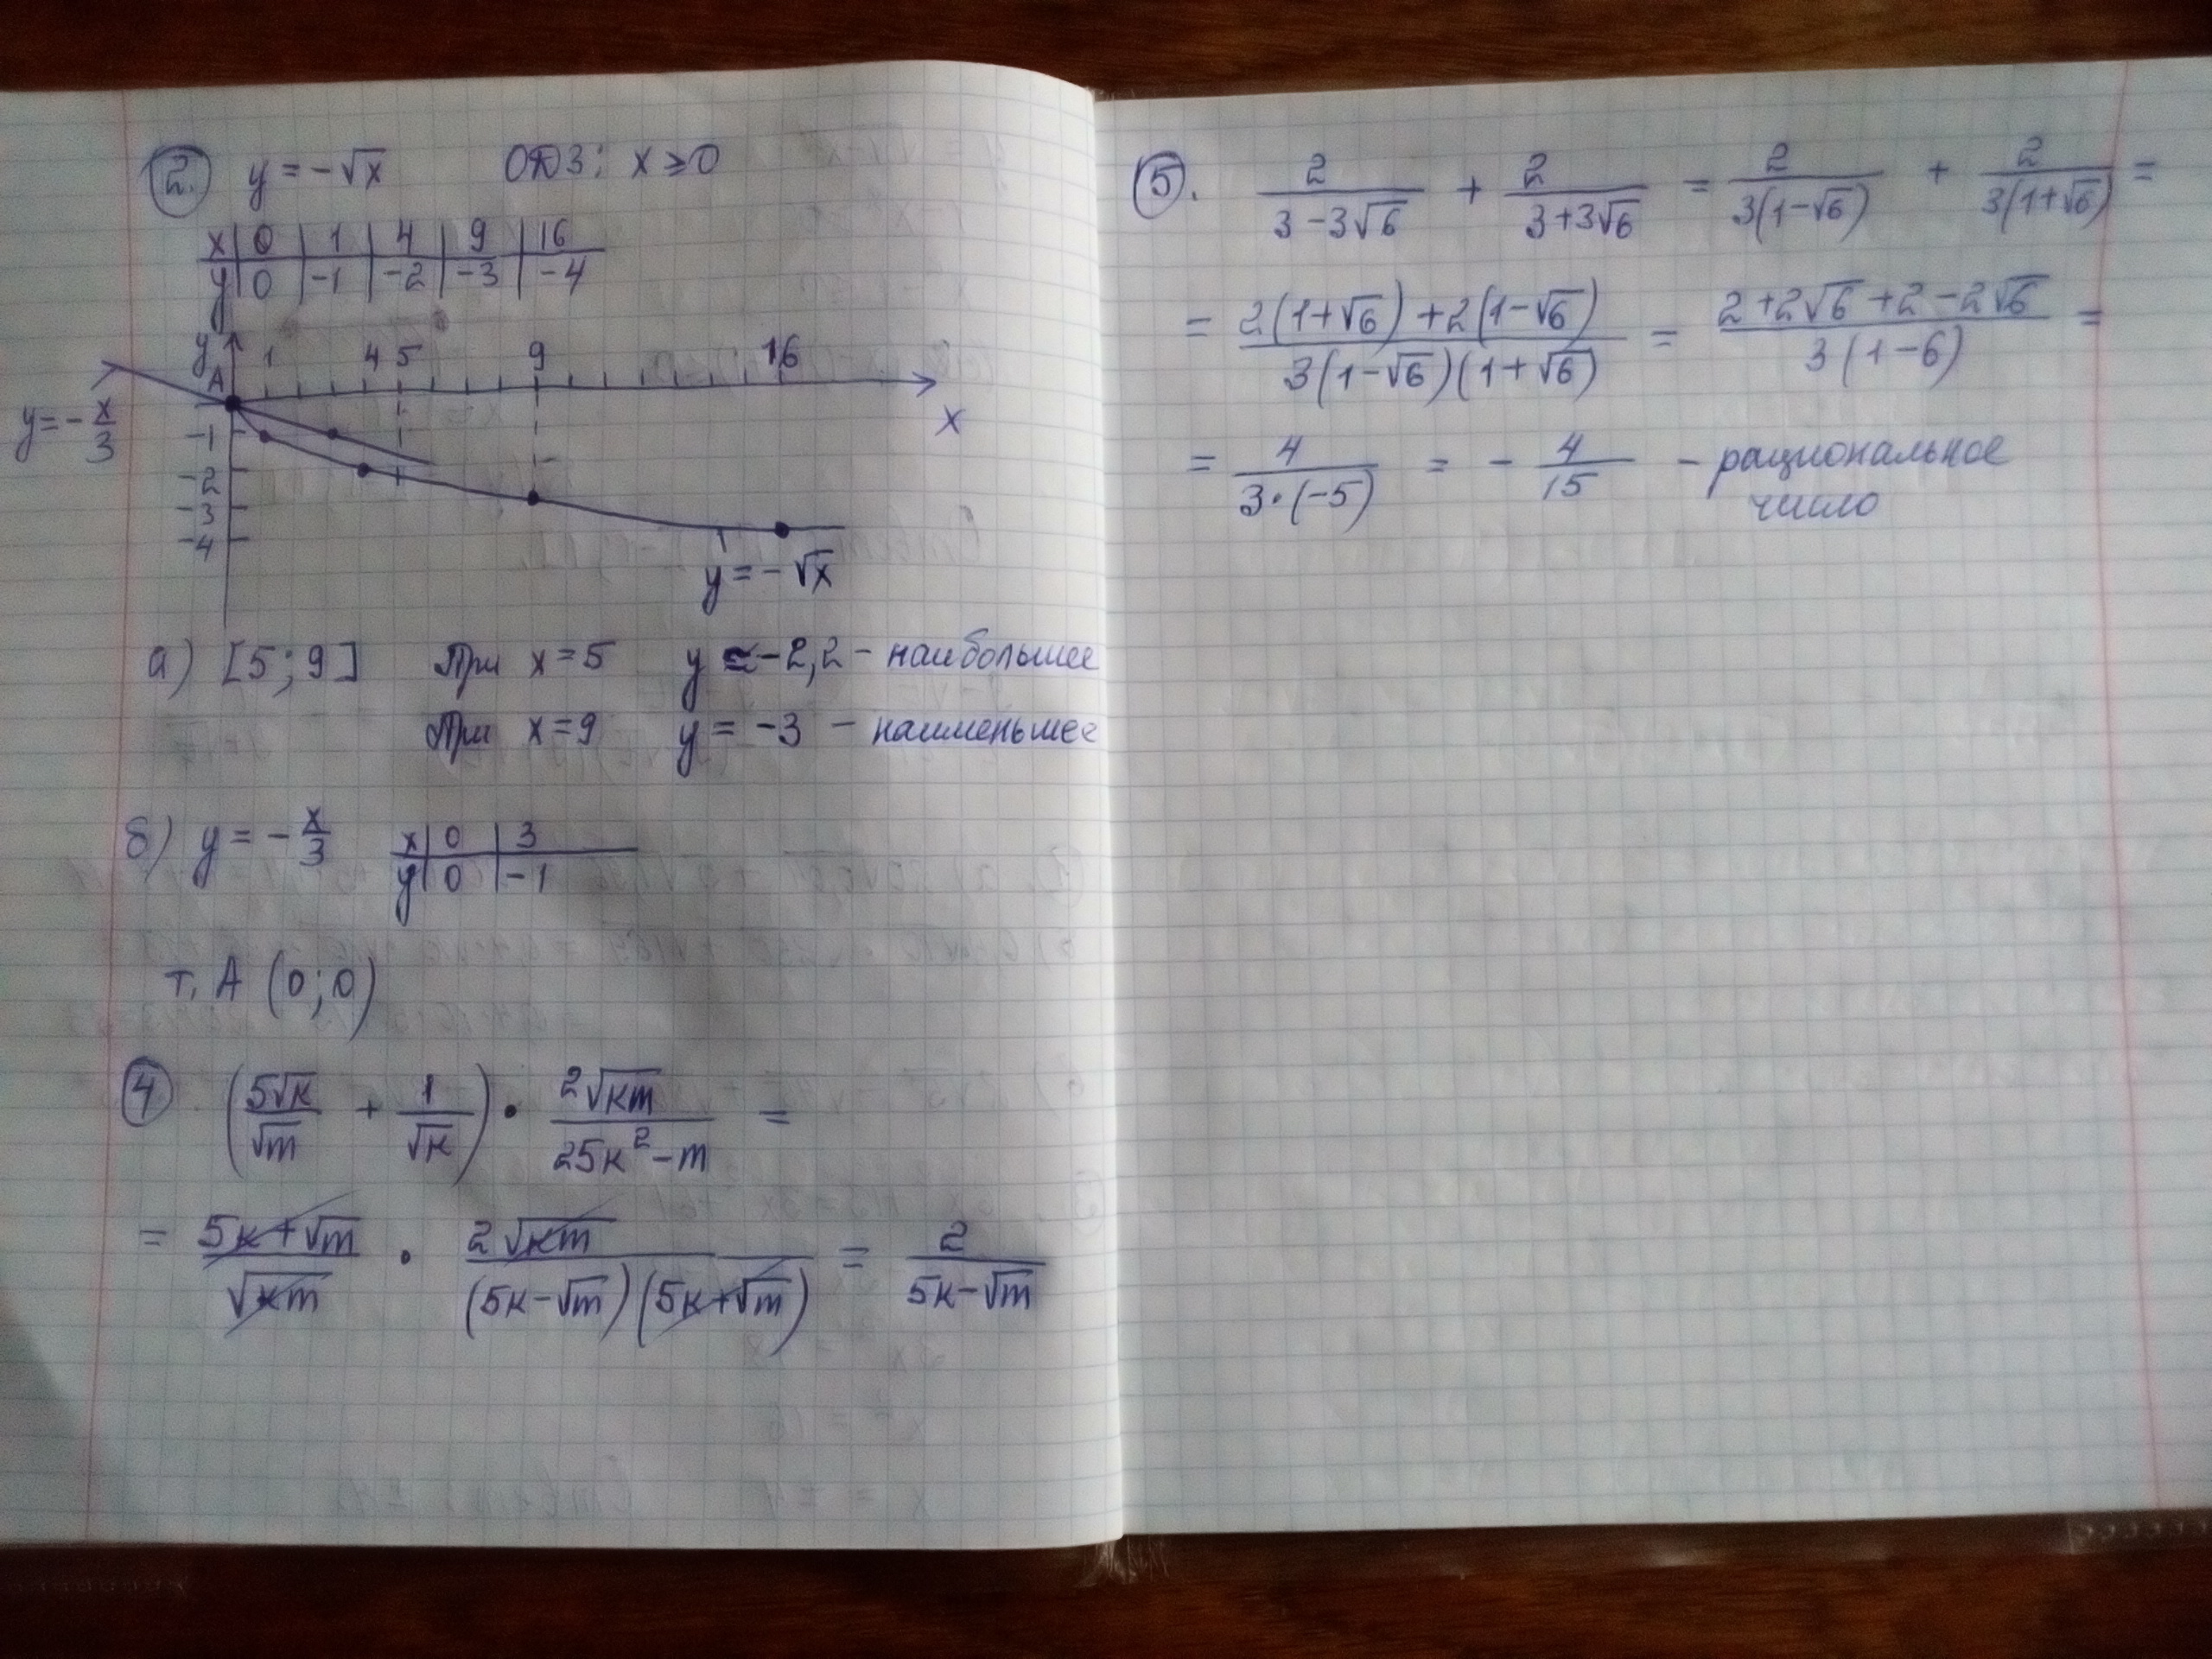 2. y = -√x ОДЗ: x ≥ 0
x | 0 | 1 | 4 | 9 | 16
y | 0 | -1 | -2 | -3 | -4
y 1 4 5 9 16
A
x
y = -x/3
-1
-2
-3
-4
y = -√x
а) [5; 9] При x = 5 y ≈ -2,2 - наибольшее
При x = 9 y = -3 - наименьшее
б) y = -x/3
x | 0 | 3
y | 0 | -1
т. А (0; 0)
4. (5√к/√m + 1/√к) · 2√кm/(25к² - m) =
= (5к+√m)/√кm · 2√кm/((5к-√m)(5к+√m)) = 2/(5к-√m)
5. 2/(3-3√6) + 2/(3+3√6) = 2/(3(1-√6)) + 2/(3(1+√6)) =
= (2(1+√6)+2(1-√6))/(3(1-√6)(1+√6)) = (2+2√6+2-2√6)/(3(1-6)) =
= 4/(3·(-5)) = -4/15 - рациональное
число